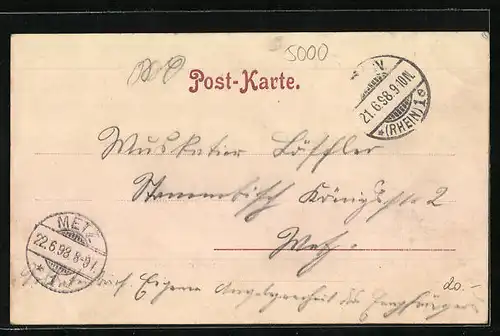 5000
Post-Karte.
21.6.98.9-10N.
*(RHEIN)1e
Musketier Löschler
Stammtisch Königstr 2
Metz.
METZ
22.6.98 8-9V.
Eigene Angelegenheit des Empfängers
20.-